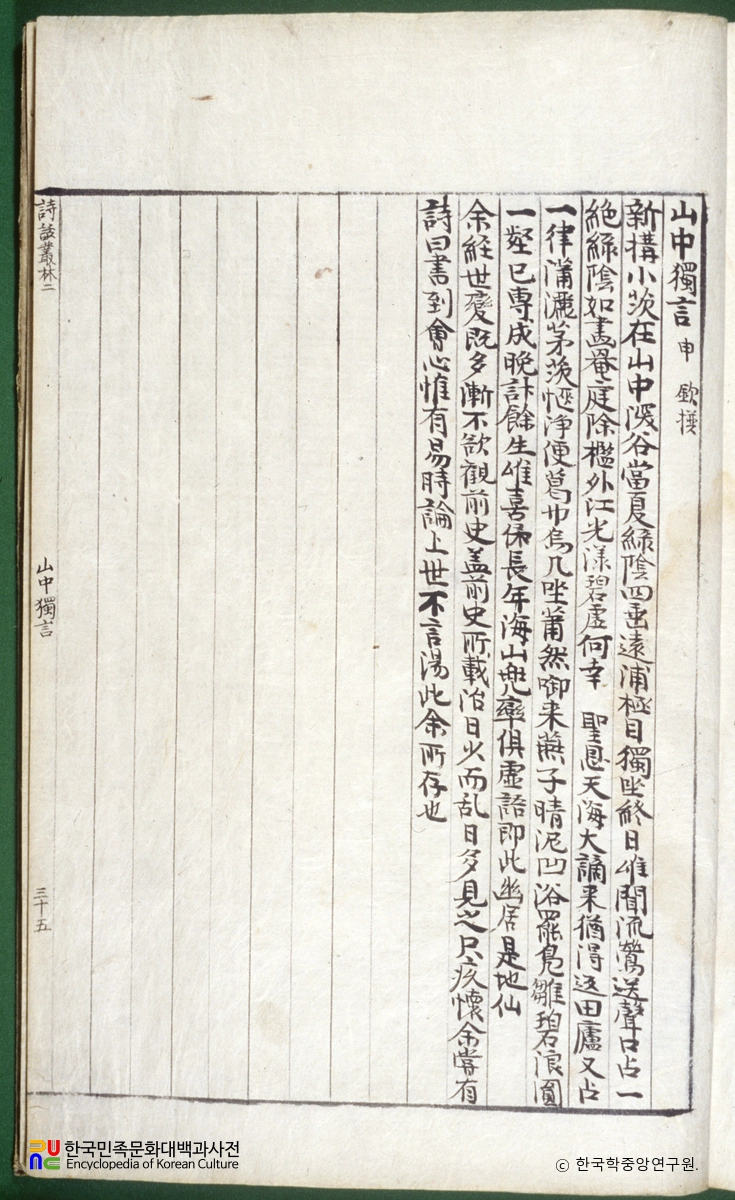 山中獨言 申 欽 撰
新構小茨在山中深谷當夏綠陰四垂遠浦極目獨坐終日唯聞流鶯送聲口占一
絶綠陰如畫罨庭除檻外江光漾碧虛何幸 聖恩天海大謫来猶得返田廬又占
一律瀟灑茅茨愜淨便葛巾烏几坐蕭然啣来燕子晴泥凹浴罷鳧雛碧浪圓
一壑已專成晩計餘生唯喜保長年海山兜率俱虛語即此幽居是地仙
余経世變既多漸不欲觀前史盖前史所載治日火而乱日多見之只疚懷余嘗有
詩曰書到會心惟有易時論上世不言湯此余所存也
詩話叢林二
山中獨言
三十五
한국민족문화대백과사전
Encyclopedia of Korean Culture
© 한국학중앙연구원.